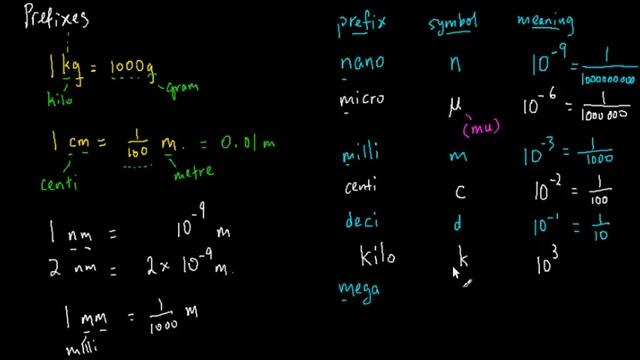 Prefixes
1 kg = 1000g
kilo
gram
1 cm = 1/100 m. = 0.01 m
centi
metre
1 nm = 10^-9 m
2 nm = 2 x 10^-9 m.
1 mm = 1/1000 m
milli
prefix symbol meaning
nano n 10^-9 = 1/1000000000
micro μ 10^-6 = 1/1000000
(mu)
milli m 10^-3 = 1/1000
centi c 10^-2 = 1/100
deci d 10^-1 = 1/10
kilo k 10^3
mega